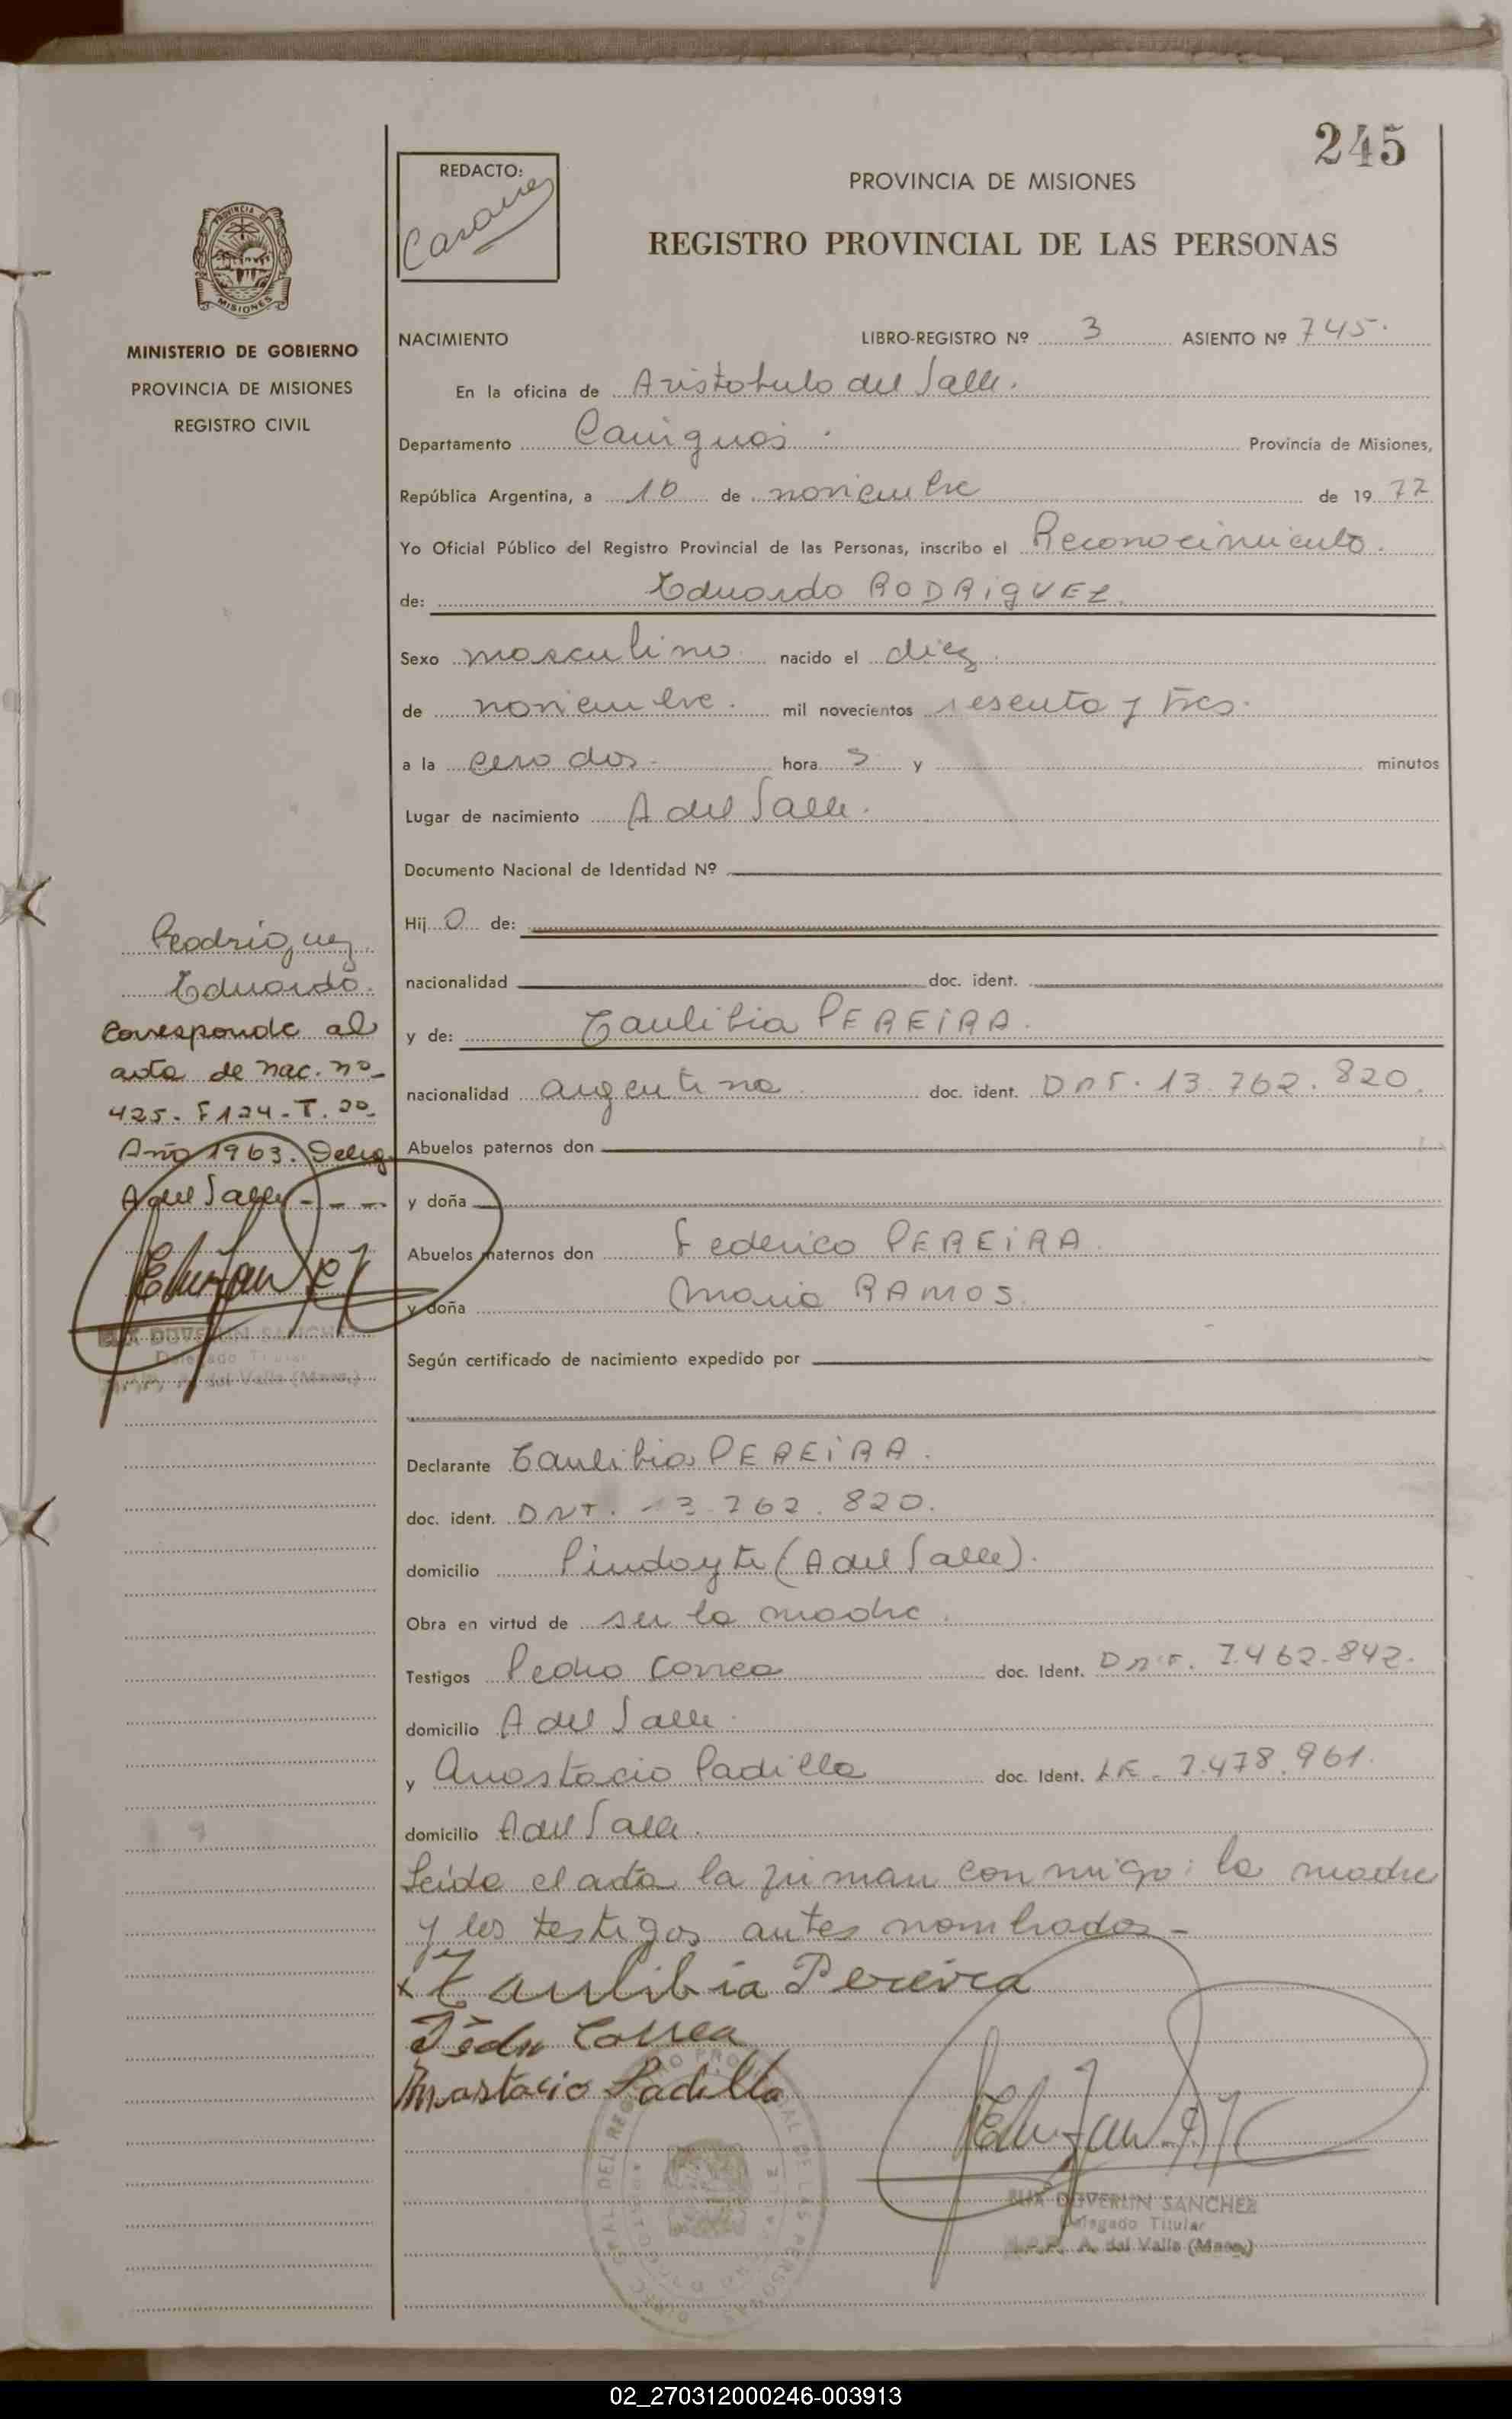 245
REDACTO:
PROVINCIA DE MISIONES
REGISTRO PROVINCIAL DE LAS PERSONAS
PROVINCIA DE
MISIONES
MINISTERIO DE GOBIERNO
PROVINCIA DE MISIONES
REGISTRO CIVIL
NACIMIENTO LIBRO-REGISTRO Nº 3 ASIENTO Nº 745.
En la oficina de Aristobulo del Valle.
Departamento Cainguas. Provincia de Misiones,
República Argentina, a 10 de noviembre de 19 77
Yo Oficial Público del Registro Provincial de las Personas, inscribo el Reconocimiento.
de: Eduardo RODRIGUEZ.
Sexo masculino nacido el diez.
de noviembre. mil novecientos sesenta y tres.
a la cero dos- hora s y minutos
Lugar de nacimiento A del Valle.
Documento Nacional de Identidad Nº
Hij o de:
nacionalidad doc. ident.
y de: Zaulibia PEREIRA.
nacionalidad argentina doc. ident. DNI. 13.762.820.
Abuelos paternos don
y doña
Abuelos maternos don Federico PEREIRA.
y doña Maria RAMOS.
Según certificado de nacimiento expedido por
Declarante Zaulibia PEREIRA.
doc. ident. DNI. 13.762.820.
domicilio Pindayti (A del Valle).
Obra en virtud de ser la madre.
Testigos Pedro Correa doc. Ident. DNI. 7.462.842.
domicilio A del Valle.
y Anastacio Padilla doc. Ident. LE. 7.478.961.
domicilio A del Valle.
Leida el acta la firman conmigo: la madre
y los testigos antes nombrados-
x Zaulibia Pereira
Pedro Correa
Anastacio Padilla
DOVERLIN SANCHEZ
Delegado Titular
R.P.P. A. del Valle (Mnes.)
Rodriguez
Eduardo.
Corresponde al
acta de nac. nº
425- F 124- T. 2º
Año 1963. Deleg.
A del Valle - - -
DOVERLIN SANCHEZ
Delegado Titular
R.P.P. A. del Valle (Mnes.)
02_270312000246-003913